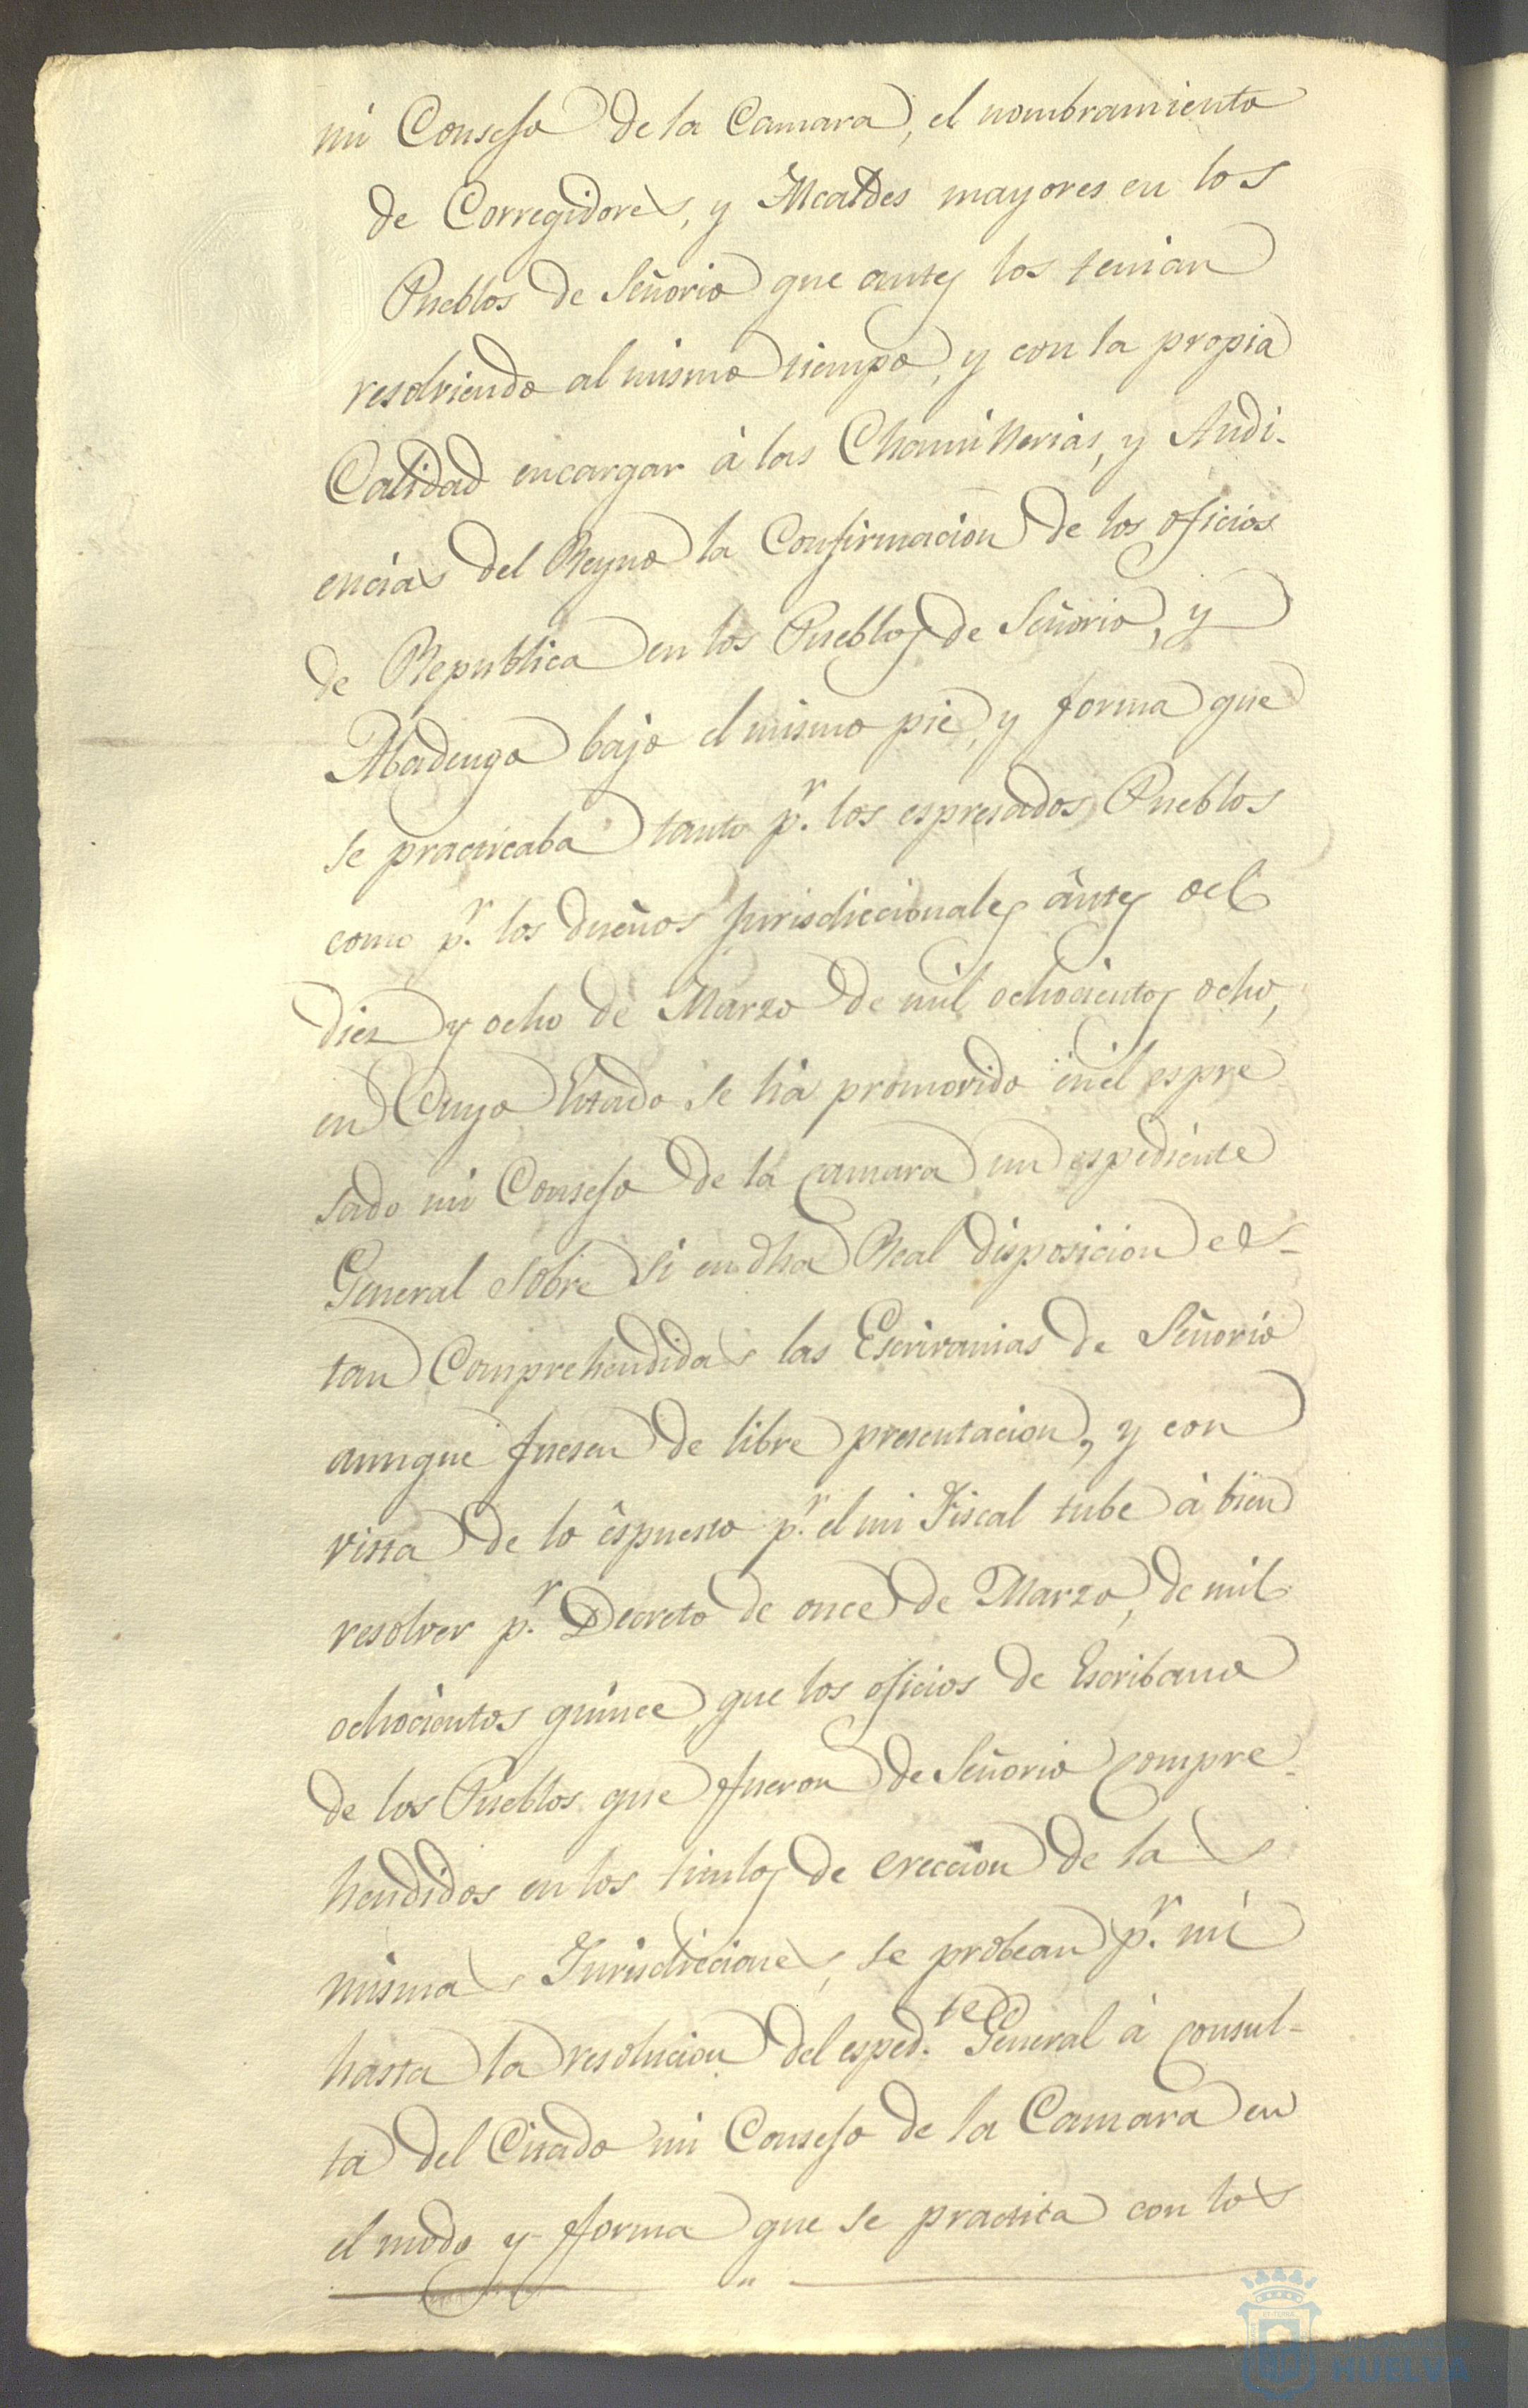 mi Consejo de la Camara, el nombramiento
de Corregidores, y Alcaldes mayores en los
Pueblos de Señorio que antes los tenian
resolviendo al mismo tiempo, y con la propia
Calidad encargar à las Chancillerias, y Audi-
encias del Reyno la Confirmacion de los oficios
de Republica en los Pueblos de Señorio, y
Abadengo bajo el mismo pie, y forma que
se practicaba tanto p.r los espresados Pueblos
como p.r los dueños Jurisdiccionales ántes del
diez y ocho de Marzo de mil ochocientos ocho,
en Cuyo Estado se há promovido en el espre
sado mi Consejo de la Camara un espediente
General sobre si en dha Real disposicion es-
tan Comprehendidas las Escrivanias de Señorio
aunque fuesen de libre presentacion, y con
vista de lo espuesto p.r el mi Fiscal tube à bien
resolver p.r Decreto de once de Marzo, de mil
ochocientos quince, que los oficios de Escribano
de los Pueblos que fueron de Señorio compre-
hendidos en los titulos de ereccion de las
mismas Jurisdicciones, se probean p.r mi
hasta la resolucion del esped.te General à consul-
ta del Citado mi Consejo de la Camara en
el modo y forma que se practica con los
HUELVA